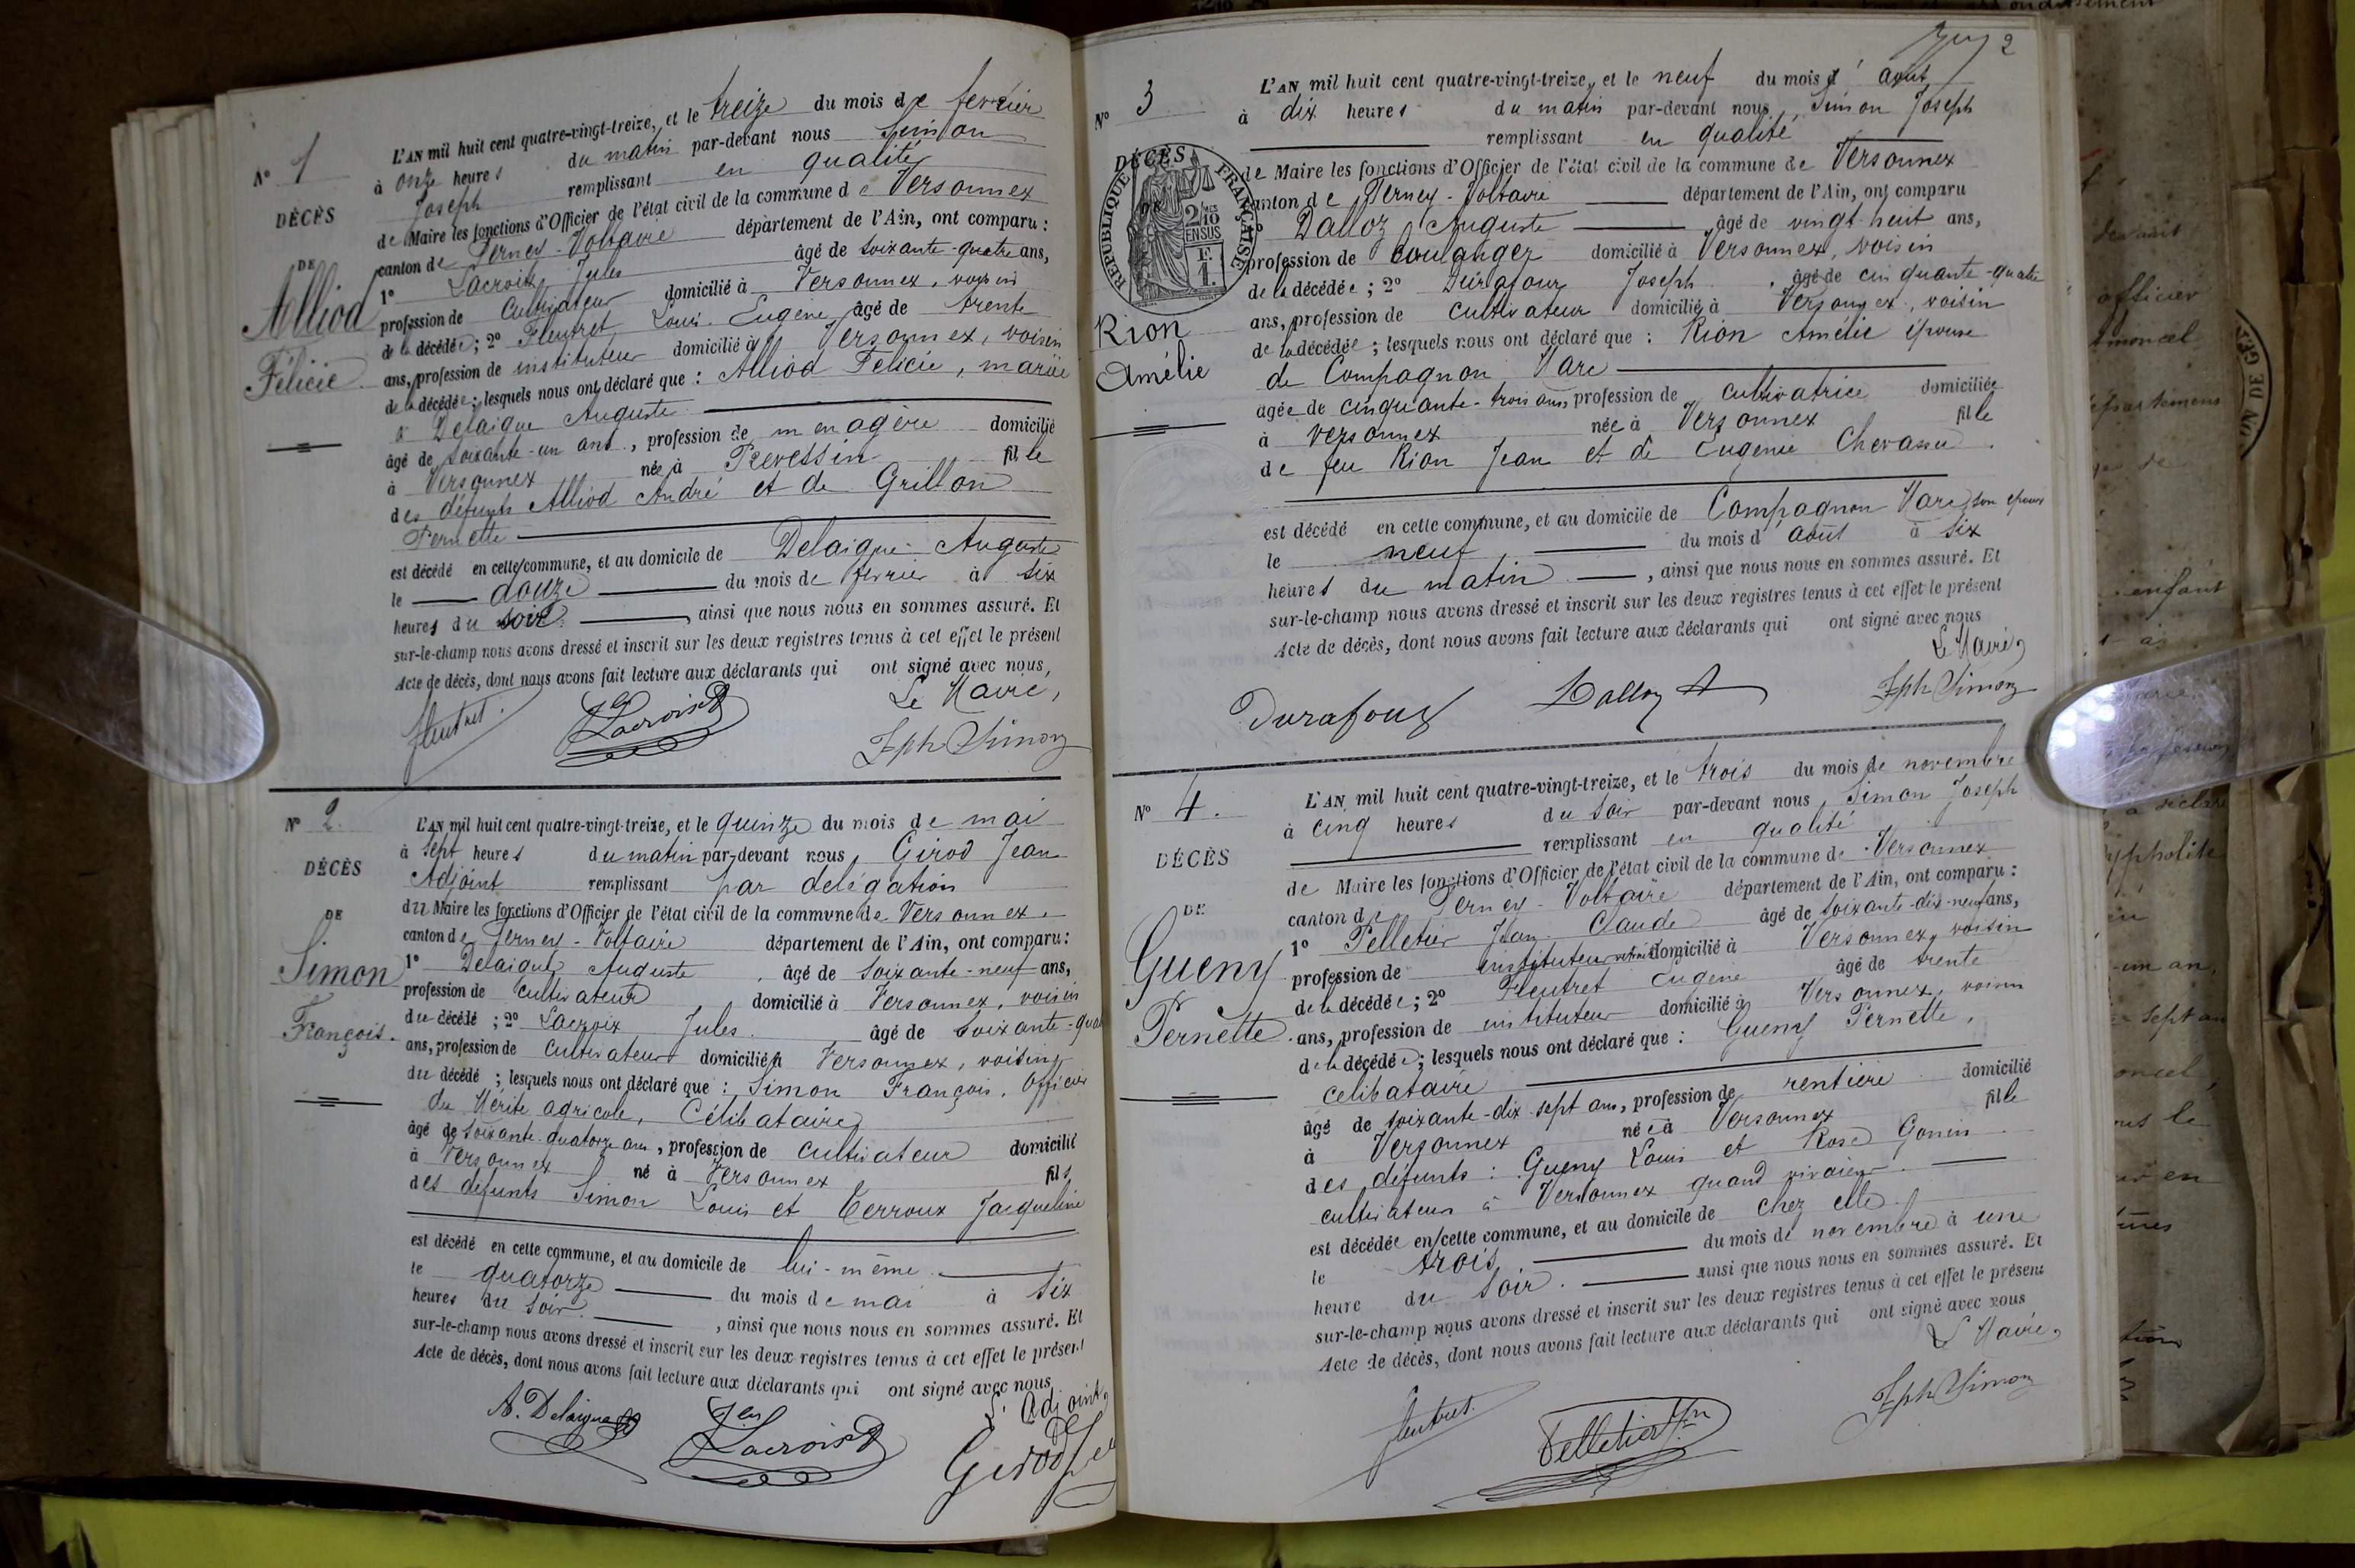 N° 1
DÉCÈS
DE
Alliod
Félicie
L'AN mil huit cent quatre-vingt-treize, et le treize du mois de fevrier
à onze heures du matin par-devant nous Simon
Joseph remplissant en qualité
de Maire les fonctions d'Officier de l'état civil de la commune de Versonnex
canton de Ferney-Voltaire département de l'Ain, ont comparu :
1° Lacroix Jules âgé de soixante-quatre ans,
profession de Cultivateur domicilié à Versonnex, voisin
de la décédée ; 2° Fleutret Louis Eugène âgé de trente
ans, profession de instituteur domicilié à Versonnex, voisin
de la décédée ; lesquels nous ont déclaré que : Alliod Félicie, mariée
à Delaigue Auguste
âgé de soixante-un ans, profession de menagère domicilié
à Versonnex née à Prevessin fille
des défunts Alliod André et de Grillon
Pernette
est décédé en cette commune, et au domicile de Delaigue Auguste
le douze du mois de fevrier à six
heures du soir ainsi que nous nous en sommes assuré. Et
sur-le-champ nous avons dressé et inscrit sur les deux registres tenus à cet effet le présent
Acte de décès, dont nous avons fait lecture aux déclarants qui ont signé avec nous,
Le Maire,
Fleutret Jles Lacroix Jph Simon
N° 2.
DÉCÈS
DE
Simon
François.
L'AN mil huit cent quatre-vingt-treize, et le quinze du mois de mai
à sept heures du matin par-devant nous, Girod Jean
Adjoint remplissant par delégation
du Maire les fonctions d'Officier de l'état civil de la commune de Versonnex.
canton de Ferney-Voltaire département de l'Ain, ont comparu :
1° Delaigue Auguste, âgé de soixante-neuf ans,
profession de cultivateur, domicilié à Versonnex, voisin
du décédé ; 2° Lacroix Jules âgé de soixante-qua
ans, profession de cultivateur domicilié à Versonnex, voisins
du décédé ; lesquels nous ont déclaré que : Simon François, Officier
du Mérite agricole, Célibataire
âgé de soixante-quatorze ans, profession de cultivateur domicilié
à Versonnex né à Versonnex fils
des défunts Simon Louis et Terroux Jacqueline
est décédé en cette commune, et au domicile de lui-même
le quatorze du mois de mai à six
heures du soir, ainsi que nous nous en sommes assuré. Et
sur-le-champ nous avons dressé et inscrit sur les deux registres tenus à cet effet le présent
Acte de décès, dont nous avons fait lecture aux déclarants qui ont signé avec nous
L'Adjoint,
A. Delaigue Jles Lacroix Girod
2
N° 3
DÉCÈS
RÉPUBLIQUE FRANÇAISE
2/10 MES
EN SUS
F.
1.
Rion
Amélie
L'AN mil huit cent quatre-vingt-treize, et le neuf du mois d'août
à dix heures du matin par-devant nous, Simon Joseph
remplissant en qualité
de Maire les fonctions d'Officier de l'état civil de la commune de Versonnex
canton de Ferney-Voltaire département de l'Ain, ont comparu
Dalloz Auguste âgé de vingt-huit ans,
profession de boulanger domicilié à Versonnex, voisin
de la décédée ; 2° Durafour Joseph, âgé de cinquante-quatre
ans, profession de cultivateur domicilié à Versonnex, voisin
de la décédée ; lesquels nous ont déclaré que : Rion Amélie épouse
de Compagnon Marc
agée de cinquante-trois ans, profession de cultivatrice domiciliée
à Versonnex née à Versonnex fille
de feu Rion Jean et de Eugénie Chevassu.
est décédé en cette commune, et au domicile de Compagnon Marc, son époux
le neuf, du mois d'août à six
heures du matin, ainsi que nous nous en sommes assuré. Et
sur-le-champ nous avons dressé et inscrit sur les deux registres tenus à cet effet le présent
Acte de décès, dont nous avons fait lecture aux déclarants qui ont signé avec nous
Le Maire,
Durafour Dalloz A Jph Simon
N° 4.
DÉCÈS
DE
Gueny
Pernette
L'AN mil huit cent quatre-vingt-treize, et le trois du mois de novembre
à cinq heures du soir par-devant nous, Simon Joseph
remplissant en qualité
de Maire les fonctions d'Officier de l'état civil de la commune de Versonnex
canton de Ferney-Voltaire département de l'Ain, ont comparu :
1° Pelletier Jean Claude âgé de soixante-dix-neuf ans,
profession de instituteur retraité domicilié à Versonnex, voisin
de la décédée ; 2° Fleutret Eugène âgé de trente
ans, profession de instituteur domicilié à Versonnex, voisin
de la décédée ; lesquels nous ont déclaré que : Gueny Pernette,
celibataire
âgé de soixante-dix-sept ans, profession de rentière domicilié
à Versonnex née à Versonnex fille
des défunts : Gueny Louis et Rose Gonin
cultivateurs à Versonnex quand vivaient.
est décédée en cette commune, et au domicile de chez elle.
le trois du mois de novembre à une
heure du soir. ainsi que nous nous en sommes assuré. Et
sur-le-champ nous avons dressé et inscrit sur les deux registres tenus à cet effet le présent
Acte de décès, dont nous avons fait lecture aux déclarants qui ont signé avec nous
Le Maire,
Fleutret. Pelletier Jph Simon